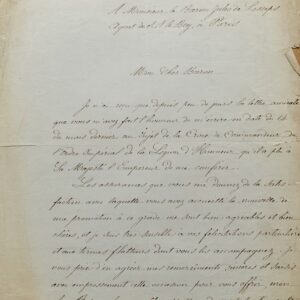 A Monsieur le Baron Jules de Lesseps
Agent de S. A. le Bey, à Paris
Mon cher Baron
Je n'ai reçu que depuis peu de jours la lettre
que vous m'avez fait l'honneur de m'écrire en date du 14
du mois dernier au sujet de la Croix de Commandeur de
l'ordre Impérial de la Légion d'Honneur qu'il a plû à
Sa Majesté l'Empereur de me conférer.
Les assurances que vous me donnez de la satis-
faction avec laquelle vous avez accueilli la nouvelle de
ma promotion à ce grade me sont bien agréables et bien
chères, et je suis très sensible à vos félicitations particulières
et aux termes flatteurs dont vous les accompagnez. Je
vous prie d'en agréer mes remerciements sincères et
avec empressement cette occasion pour vous offrir mon